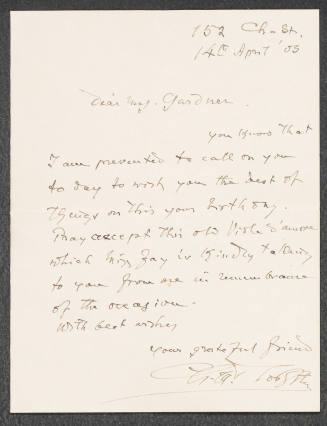 152 Ch. St.
14th April '03
Dear Mrs. Gardner.
you know that
I am prevented to call on you
to day to wish you the best of
things on this your birthday.
Pray accept this old Viole d'amore
which Miss Fay is kindly taking
to you from me in remembrance
of the occasion.
With best wishes
your grateful friend